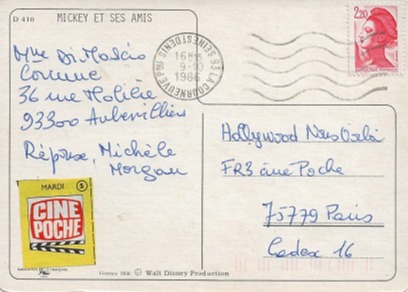 D 410 MICKEY ET SES AMIS
Mme Di Mascio
Corinne
36 rue Molière
93300 Aubervilliers
Réponse, Michèle
Morgan
93 LA COURNEUVE PAL SEINE ST DENIS
16H
9-10
1986
2,20
MARDI 5
CINE
POCHE
Hollywood Nous Voilà
FR3 Ciné Poche
75779 Paris
Cedex 16
© Walt Disney Production